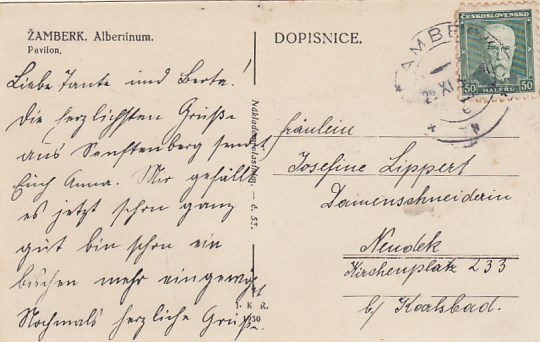 ŽAMBERK. Albertinum.
Pavilon.
Liebe Tante und Berta!
Die herzlichsten Grüße
aus Senftenberg sendet
Euch Anna. Mir gefällt
es jetzt schon ganz
gut bin schon ein
bischen mehr eingewöhnt
Nochmals herzliche Grüße.
Nákladem vlastním. — č. 55.
I. K. R.
1930
DOPISNICE.
ČESKOSLOVENSKO
50 HALÉŘŮ 50
ŽAMBERK
XI
Fräulein
Josefine Lippert
Damenschneiderin
Neudek
Kirchenplatz 233
b/ Koalsbad.